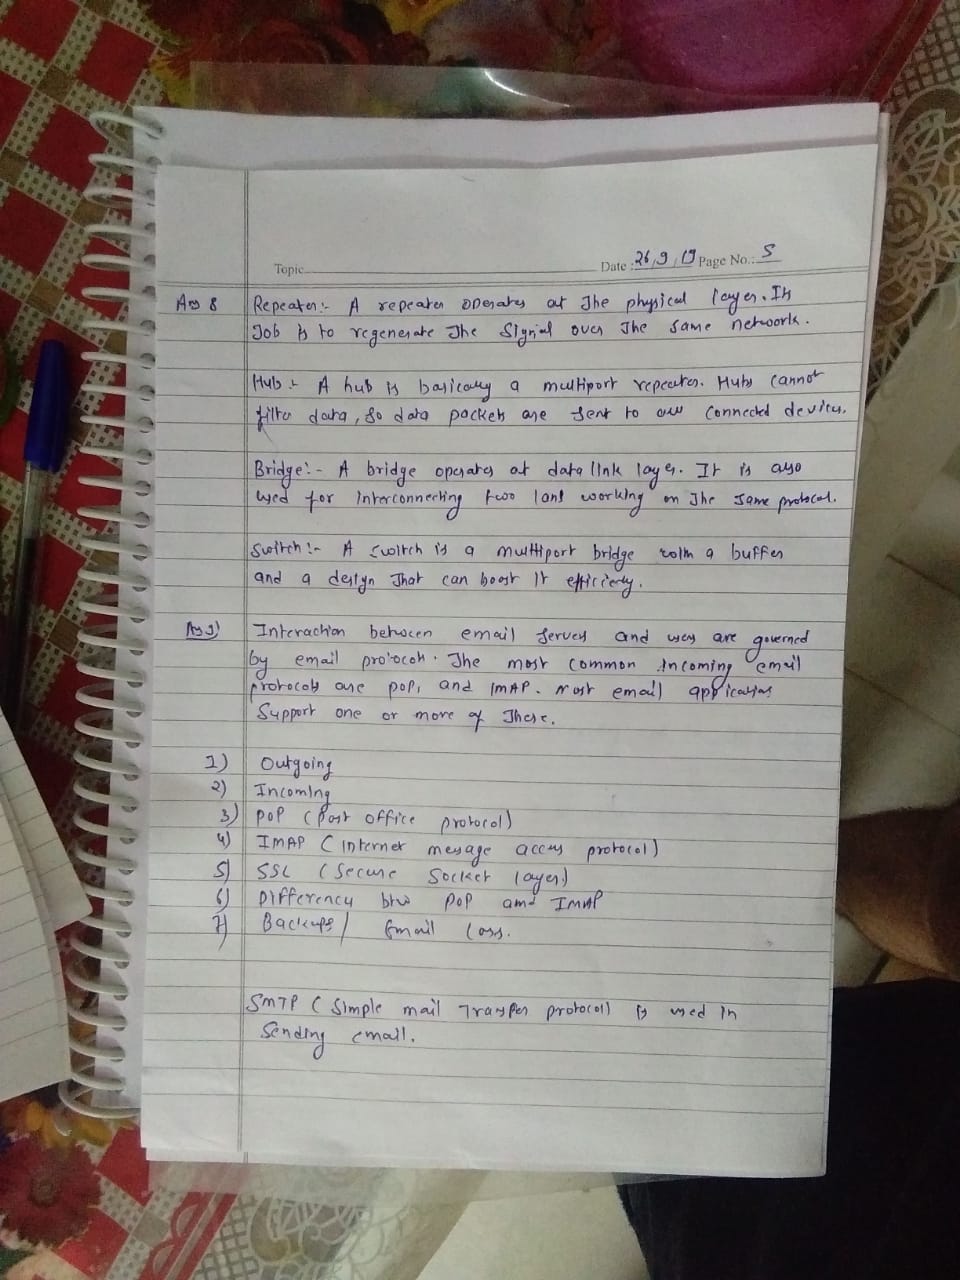 Topic Date : 26/9/19 Page No.: 5
Ans 8 Repeater:- A repeater operates at the physical layer. Its
Job is to regenerate the signal over the same network.
Hub :- A hub is basically a multiport repeater. Hubs cannot
filter data, so data packets are sent to all connected devices.
Bridge:- A bridge operates at data link layer. It is also
used for interconnecting two lans working on the same protocol.
Switch:- A switch is a multiport bridge with a buffer
and a design that can boost it efficiently.
Ans 9) Interaction between email servers and users are governed
by email protocols. The most common incoming email
protocols are POP, and IMAP. Most email applications
Support one or more of these.
1) Outgoing
2) Incoming
3) POP (Post office protocol)
4) IMAP (Internet message access protocol)
5) SSL (Secure Socket layer)
6) Differency btw POP and IMAP
7) Backups / Email Loss.
SMTP (Simple mail Transfer protocol) is used in
Sending email.